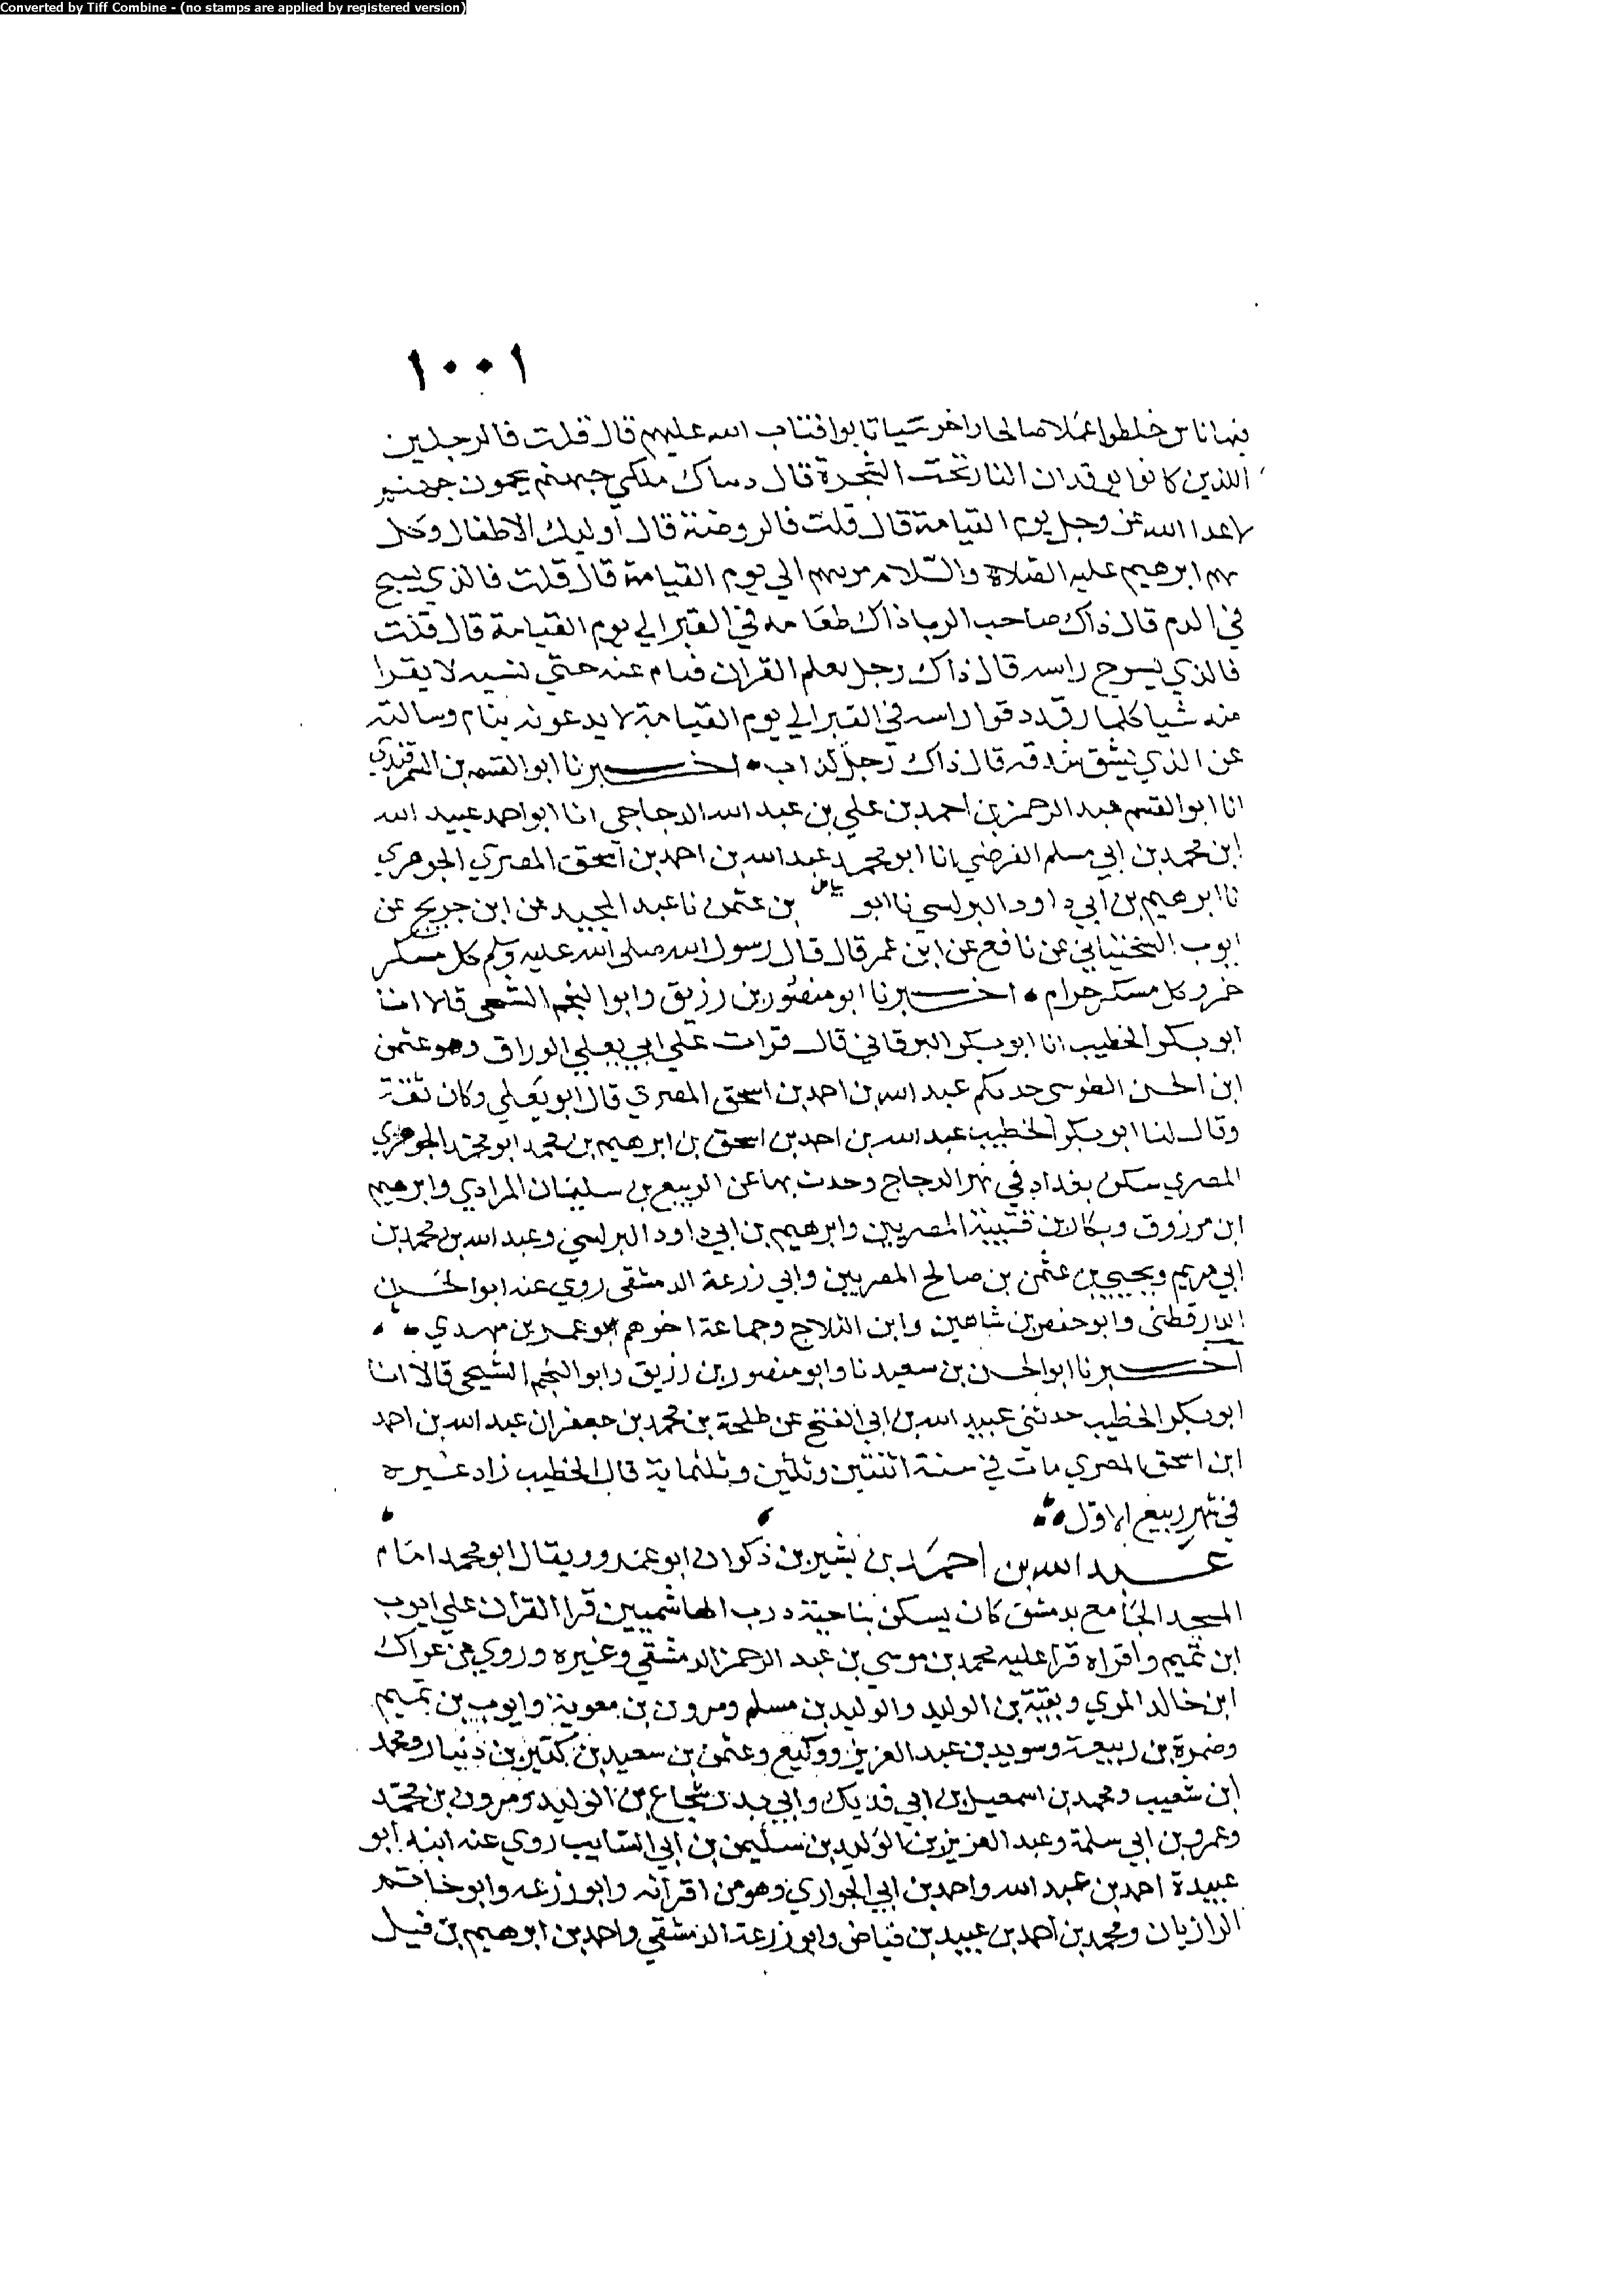 Converted by Tiff Combine - (no stamps are applied by registered version)
١٠٠١
فيها ناس خلطوا عملا صالحا واخر سيا تابوا فتاب الله عليهم قال قلت فالرجلين
اللذين كانوا يوقدان النار تحت الشجرة قال ملكي جهنم يحمون جهنم
لاعدا الله عز وجل يوم القيامة قال قلت فالروضة قال اوليك الاطفال وكل
بهم ابرهيم عليه الصلاة والسلام يربيهم الي يوم القيامة قال قلت فالذي يسبح
في الدم قال ذاك صاحب الربا ذاك طعامه في القبر الي يوم القيامة قال قلت
فالذي يسرح راسه قال ذاك رجل تعلم القران فنام عنه حتي نسيه لا يقرا
منه شيا كلما رقد دقوا راسه في القبر الي يوم القيامة لا يدعونه ينام وسالته
عن الذي يشق شدقه قال ذاك رجل كذاب • اخبرنا ابو القسم بن السمرقندي
انا ابو القسم عبد الرحمن بن احمد بن علي بن عبد الله الدجاجي انا ابو احمد عبيد الله
ابن محمد بن ابي مسلم الفرضي انا ابو محمد عبد الله بن احمد بن اسحق المصري الجوهري
نا ابرهيم بن ابي داود البرلسي نا ابو بياض بن عثمن نا عبد المجيد عن ابن جريج عن
ايوب السختياني عن نافع عن ابن عمر قال قال رسول الله صلى الله عليه وسلم كل مسكر
خمر وكل مسكر حرام • اخبرنا ابو منصور بن رزيق وابو النجم الشيحي قالا انا
ابو بكر الخطيب انا ابو بكر البرقاني قال قرات علي ابي يعلي الوراق وهو عثمن
ابن الحسن الطوسي حدثكم عبد الله بن احمد بن اسحق المصري قال ابو يعلي وكان ثقة
وقال لنا ابو بكر الخطيب عبد الله بن احمد بن اسحق بن ابرهيم بن محمد ابو محمد الجوهري
المصري سكن بغداد في نهر الدجاج وحدث بها عن الربيع بن سليمان المرادي وابرهيم
ابن مرزوق وبكار بن قتيبة المصريين وابرهيم بن ابي داود البرلسي وعبد الله بن محمد بن
ابي مريم ويحيي بن عثمن بن صالح المصريين وابي زرعة الدمشقي روي عنه ابو الحسن
الدارقطني وابو حفص بن شاهين وابن الثلاج وجماعة اخرهم ابو عمر بن مهدي •
اخبرنا ابو الحسن بن سعيد نا وابو منصور بن رزيق وابو النجم الشيحي قالا انا
ابو بكر الخطيب حدثني عبيد الله بن ابي الفتح عن طلحة بن محمد بن جعفر ان عبد الله بن احمد
ابن اسحق المصري مات في سنة اثنتين وثلثين وثلثماية قال الخطيب زاد غيره
في شهر ربيع الاول
عبد الله بن احمد بن بشير بن ذكوان ابو عمرو ويقال ابو محمد امام
المسجد الجامع بدمشق كان يسكن بناحية درب الهاشميين قرا القران علي ايوب
ابن تميم واقراه قرا عليه محمد بن موسي بن عبد الرحمن الدمشقي وغيره وروي عن عراك
ابن خالد المري وبقية بن الوليد والوليد بن مسلم ومرون بن معوية وايوب بن تميم
وضمرة بن ربيعة وسويد بن عبد العزيز ووكيع وعثمن بن سعيد بن كثير بن دينار ومحمد
ابن شعيب ومحمد بن اسمعيل بن ابي فديك وابي بدر شجاع بن الوليد ومرون بن محمد
وعمرو بن ابي سلمة وعبد العزيز بن الوليد بن سليمن بن ابي السايب روي عنه ابنه ابو
عبيدة احمد بن عبد الله واحمد بن ابي الحواري وهو من اقرانه وابو زرعه وابو حاتم
الرازيان ومحمد بن احمد بن عبيد بن فياض وابو زرعة الدمشقي واحمد بن ابرهيم بن فيل